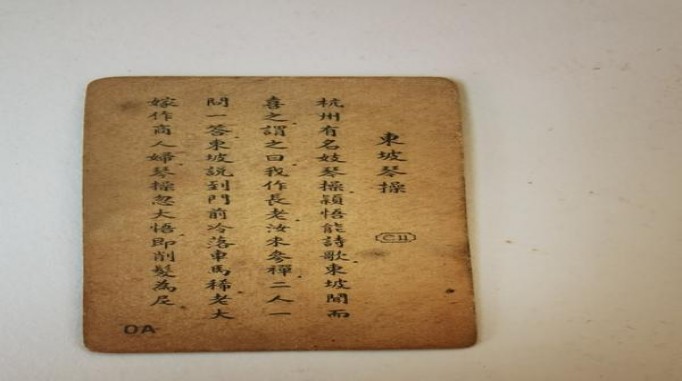 東坡琴操
C11
杭州有名妓琴操穎悟能詩歌東坡聞而
喜之謂之曰我作長老汝未參禪二人一
問一答東坡說到門前冷落車馬稀老大
嫁作商人婦琴操忽大悟即削髮為尼
OA